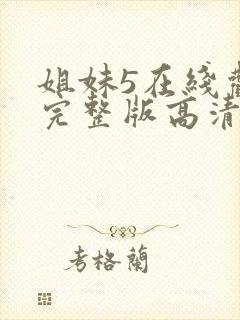 姐妹5在綫觀
完整版高清
考格蘭